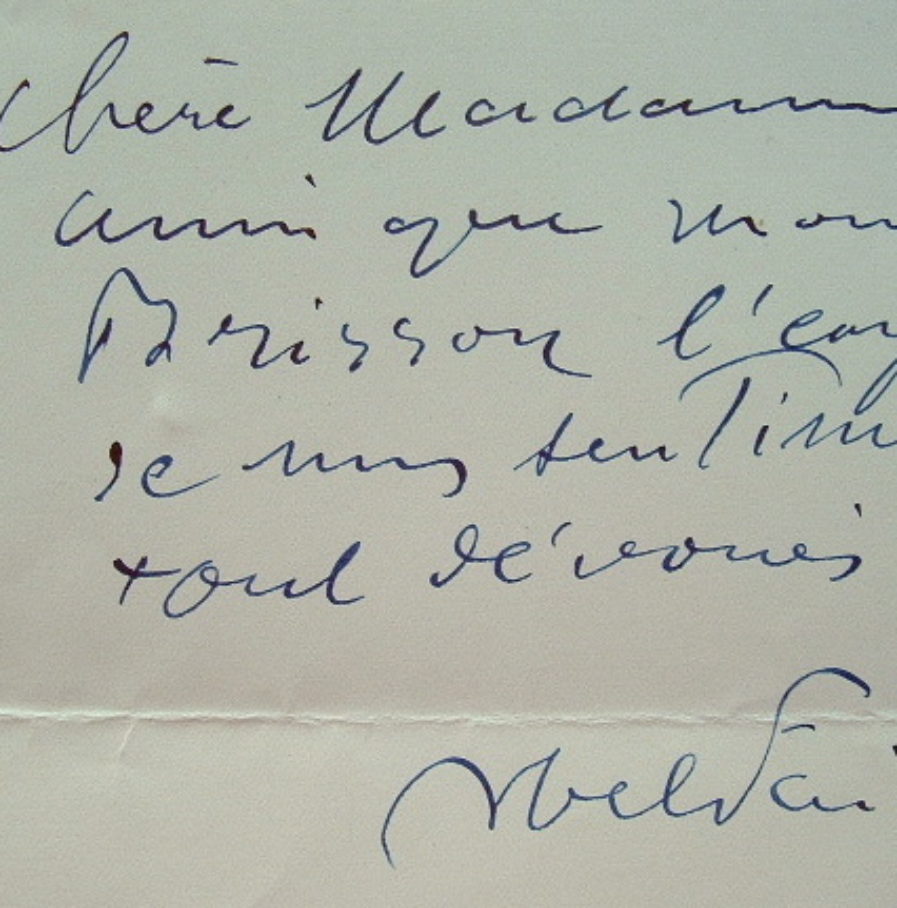 chère Madam
ainsi que mon
Brisson l'ex
de mes sentim
tout dévoués
Abel Fai